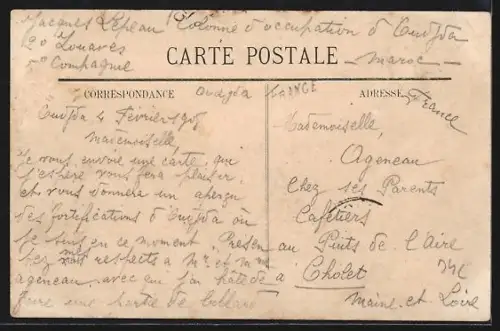 Jacques Lepeau Colonne d occupation d Oudjda
2e Zouaves
5me Compagnie
Maroc
CARTE POSTALE
CORRESPONDANCE
Oudjda
FRANCE
ADRESSE
France
Oudjda 4 Février 1908
Mademoiselle,
Je vous envoie une carte, qui
j'espère vous fera plaisir,
et vous donnera un aperçu
des fortifications d Oudjda où
je suis en ce moment. Présen
tez mes respects a Mr. et Mme
ageneau. avec qui j'ai hâte de
faire une partie de billard
Mademoiselle,
Ageneau
Chez ses Parents
Cafetiers
au Puits de l'Aire
a Cholet
Maine et Loire